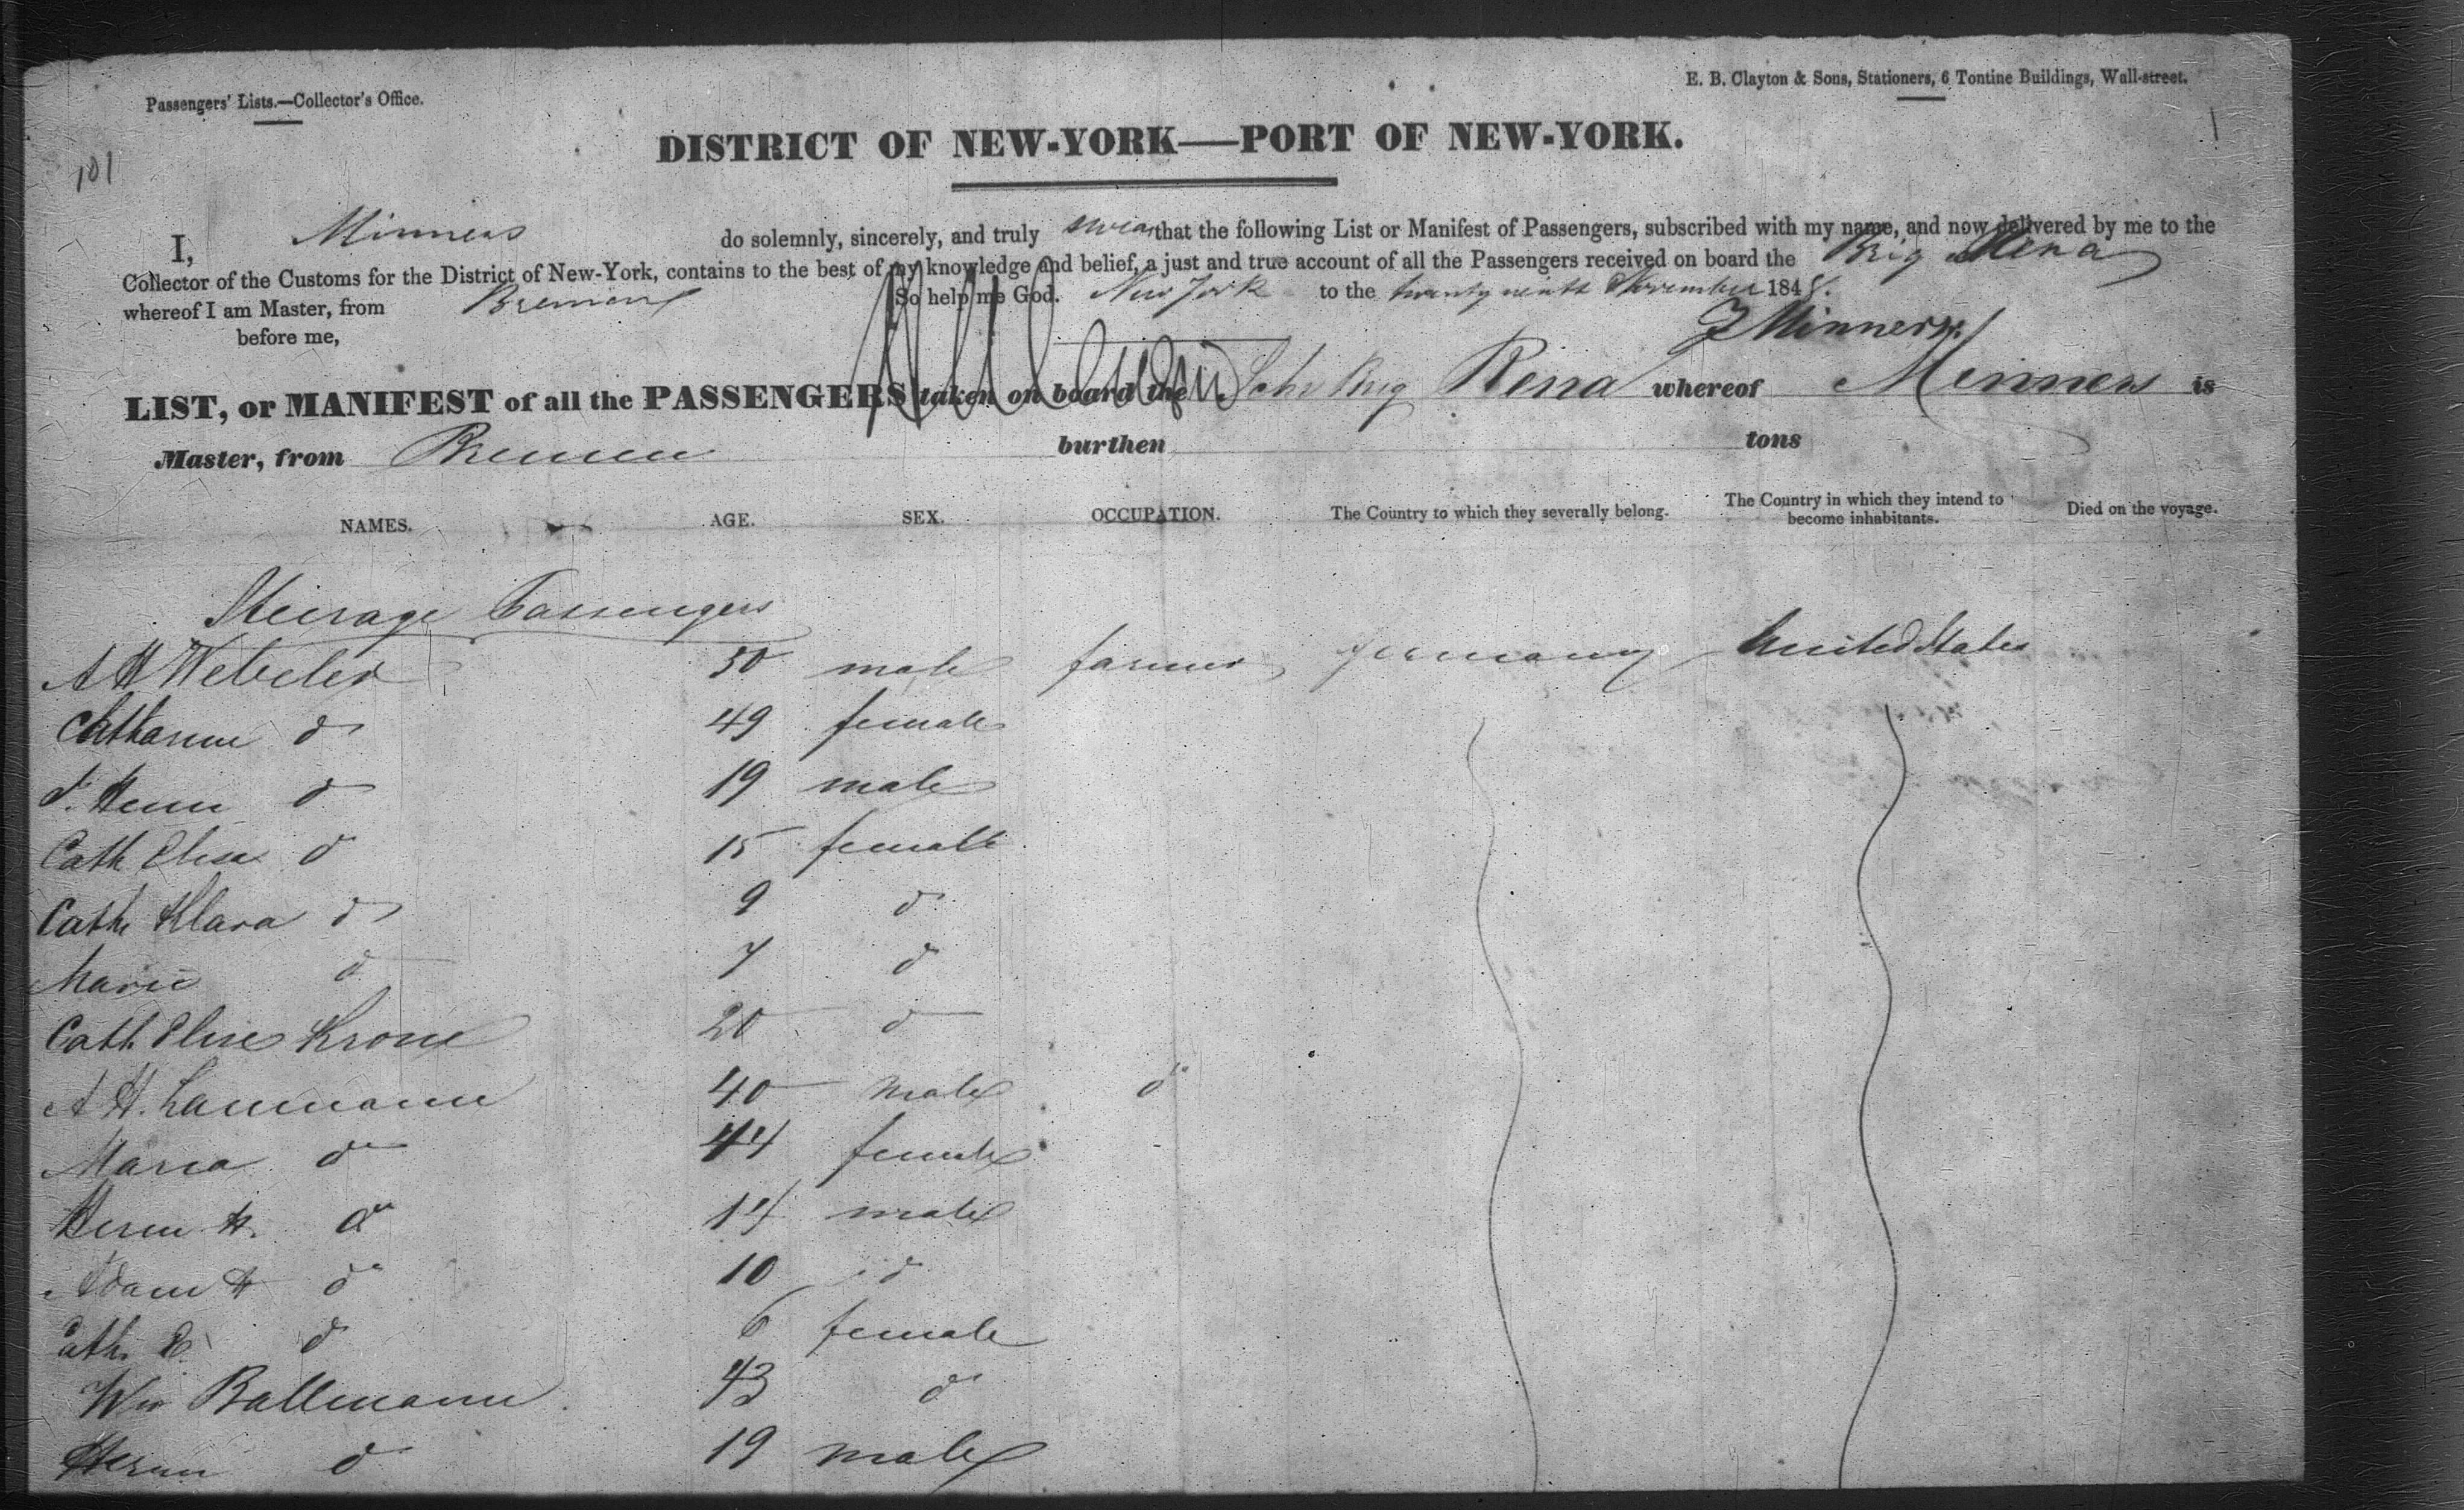 Passengers' Lists.—Collector's Office.
E. B. Clayton & Sons, Stationers, 6 Tontine Buildings, Wall-street.
101
1
DISTRICT OF NEW-YORK—PORT OF NEW-YORK.
I, Minners do solemnly, sincerely, and truly swear that the following List or Manifest of Passengers, subscribed with my name, and now delivered by me to the
Collector of the Customs for the District of New-York, contains to the best of my knowledge and belief, a just and true account of all the Passengers received on board the Brig Rena
whereof I am Master, from Bremen So help me God. New York to the twenty ninth November 1848.
before me, Minners
LIST, or MANIFEST of all the PASSENGERS taken on board the Schr Brig Rena whereof Minners is
Master, from Bremen burthen tons
NAMES. AGE. SEX. OCCUPATION. The Country to which they severally belong. The Country in which they intend to become inhabitants. Died on the voyage.
Steerage Passengers
A H 50 male farmer Germany United States
Catharine do 49 female
do 19 male
Cath Elisa do 15 female
Cath Klara do 9 do
Marie do 7 do
Cath Elise Krone 20 do
A H. Laumann 40 male do
Maria do 44 female
Herm H. do 14 male
Adam H do 10 do
Cath. E. do 6 female
Ww Ballmann 43 do
Herm do 19 male